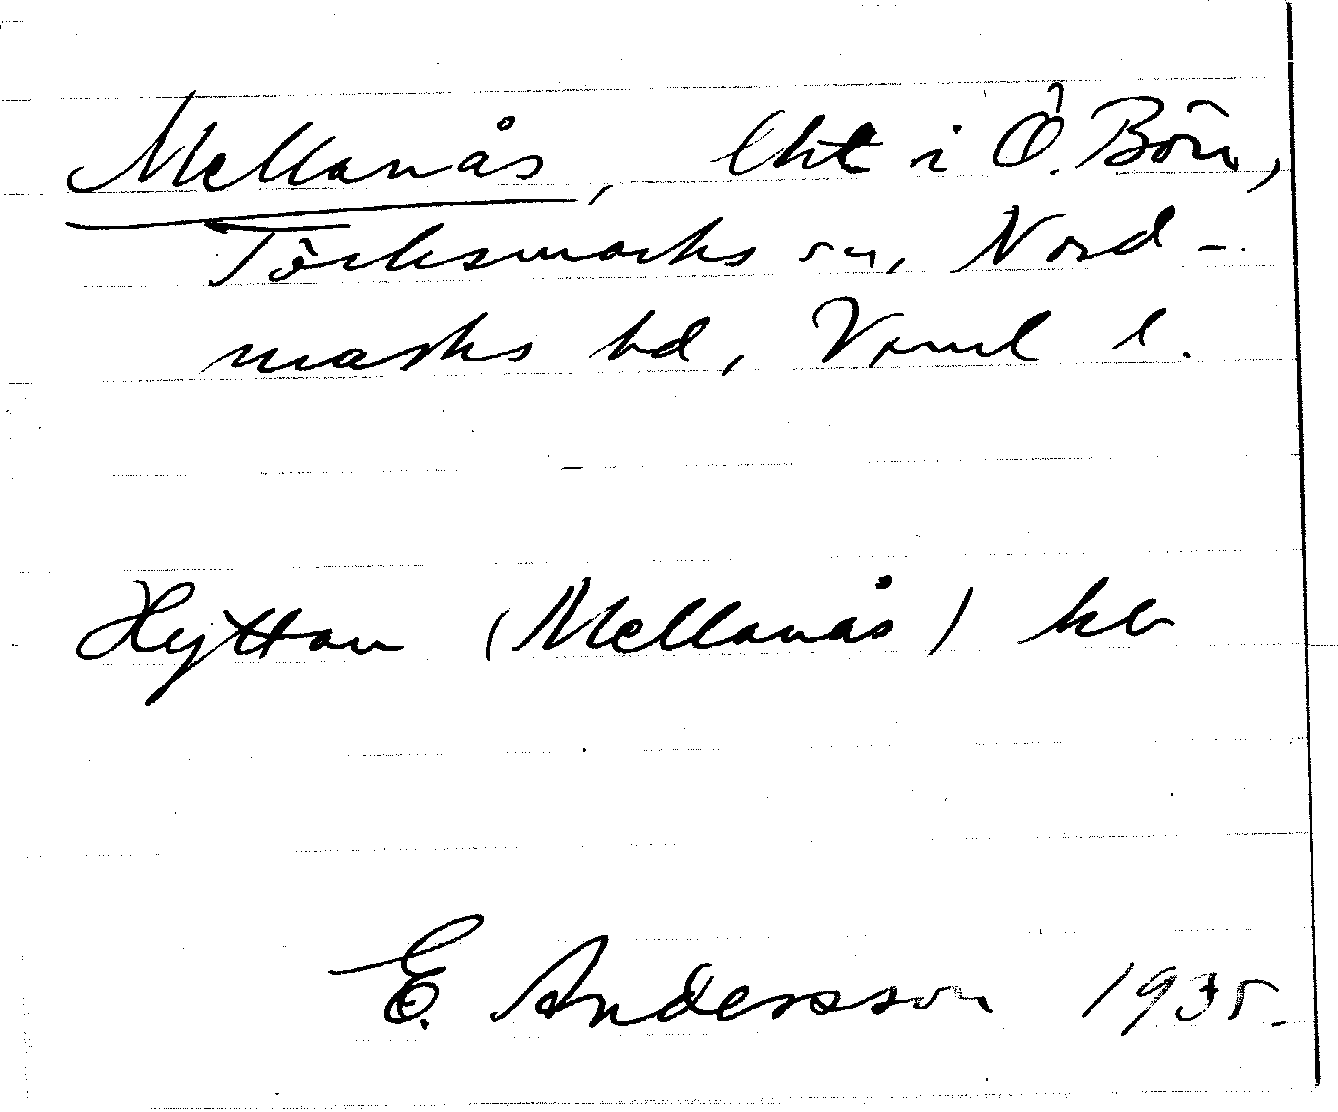 Mellanås, lht i Ö. Bön,
Töcksmarks sn, Nord-
marks hd, Vrml l.
Hyttan (Mellanås) kb
E. Andersson 1935.